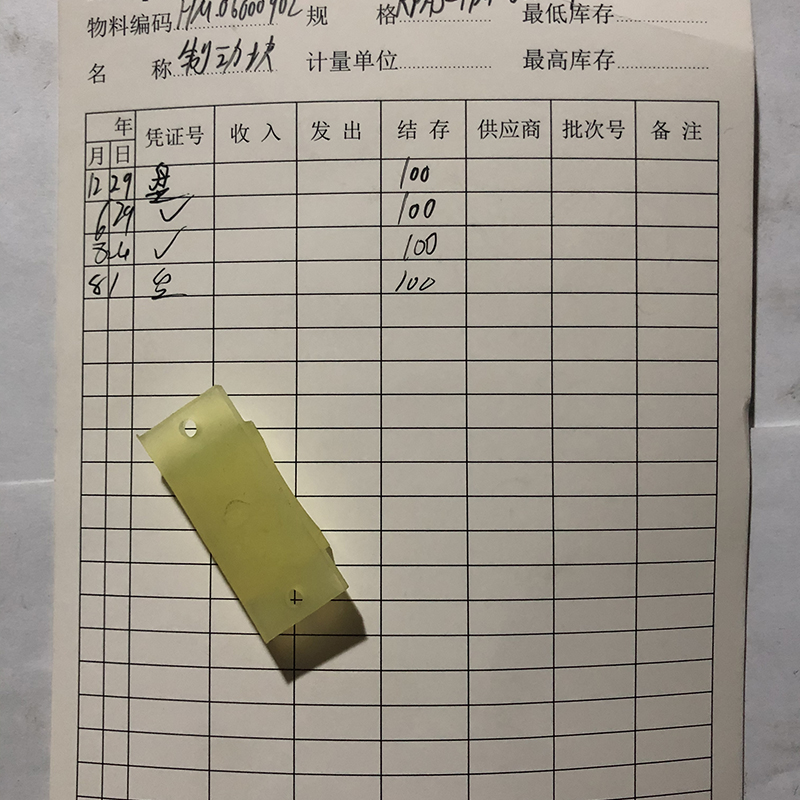 物料编码 HM.06000902 规 格 最低库存
名 称 制动块 计量单位 最高库存
年
月 日 凭证号 收入 发出 结存 供应商 批次号 备注
12 29 盘 100
6 29 ✓ 100
8 4 ✓ 100
8 1 100